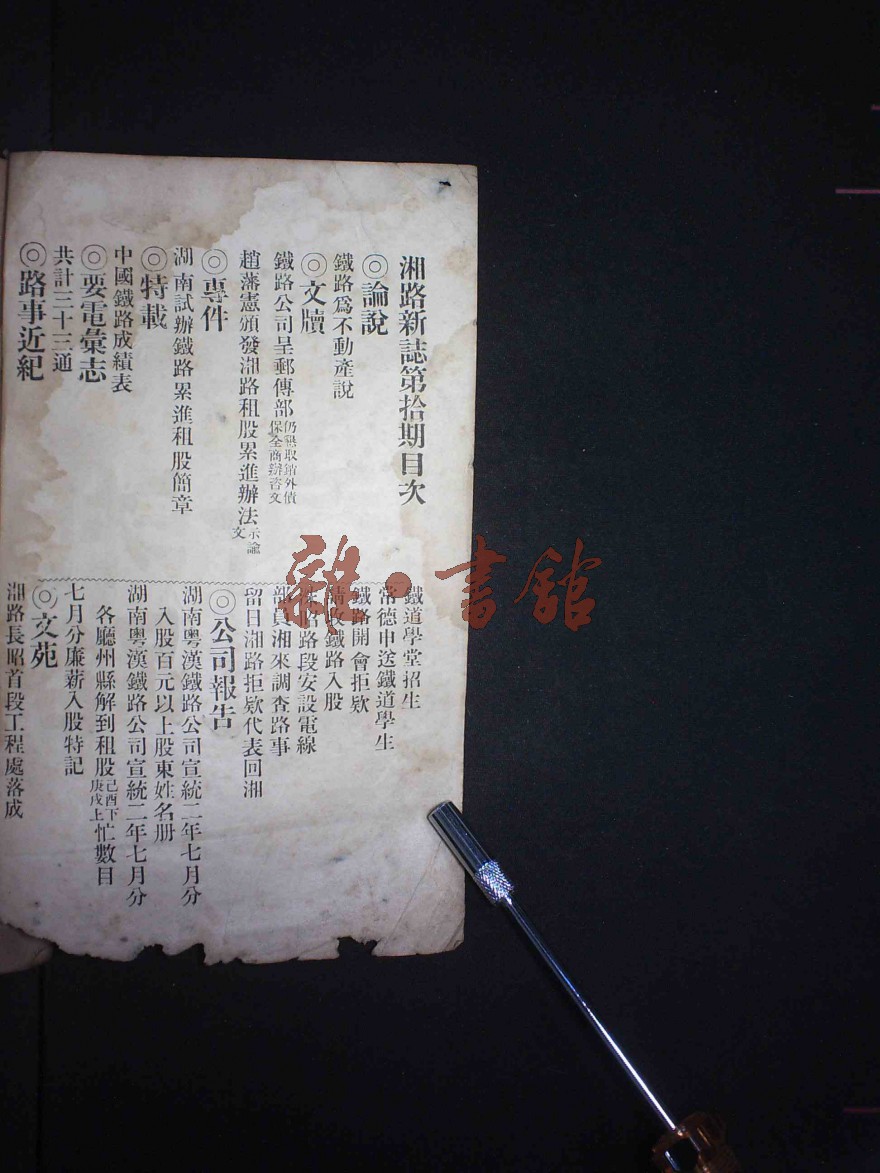 湘路新誌第拾期目次
◎論說
鐵路爲不動產說
◎文牘
鐵路公司呈郵傳部仍懇取銷外債保全商辦咨文
趙藩憲頒發湘路租股累進辦法示諭文
◎專件
湖南試辦鐵路累進租股簡章
◎特載
中國鐵路成績表
◎要電彙志
共計三十三通
◎路事近紀
鐵道學堂招生
常德申送鐵道學生
鐵路開會拒欵
收鐵路入股
路段安設電線
部員湘來調查路事
留日湘路拒欵代表回湘
◎公司報告
湖南粵漢鐵路公司宣統二年七月分
入股百元以上股東姓名册
湖南粵漢鐵路公司宣統二年七月分
各廳州縣解到租股己酉下庚戌上忙數目
七月分廉薪入股特記
◎文苑
湘路長昭首段工程處落成
雜·書館